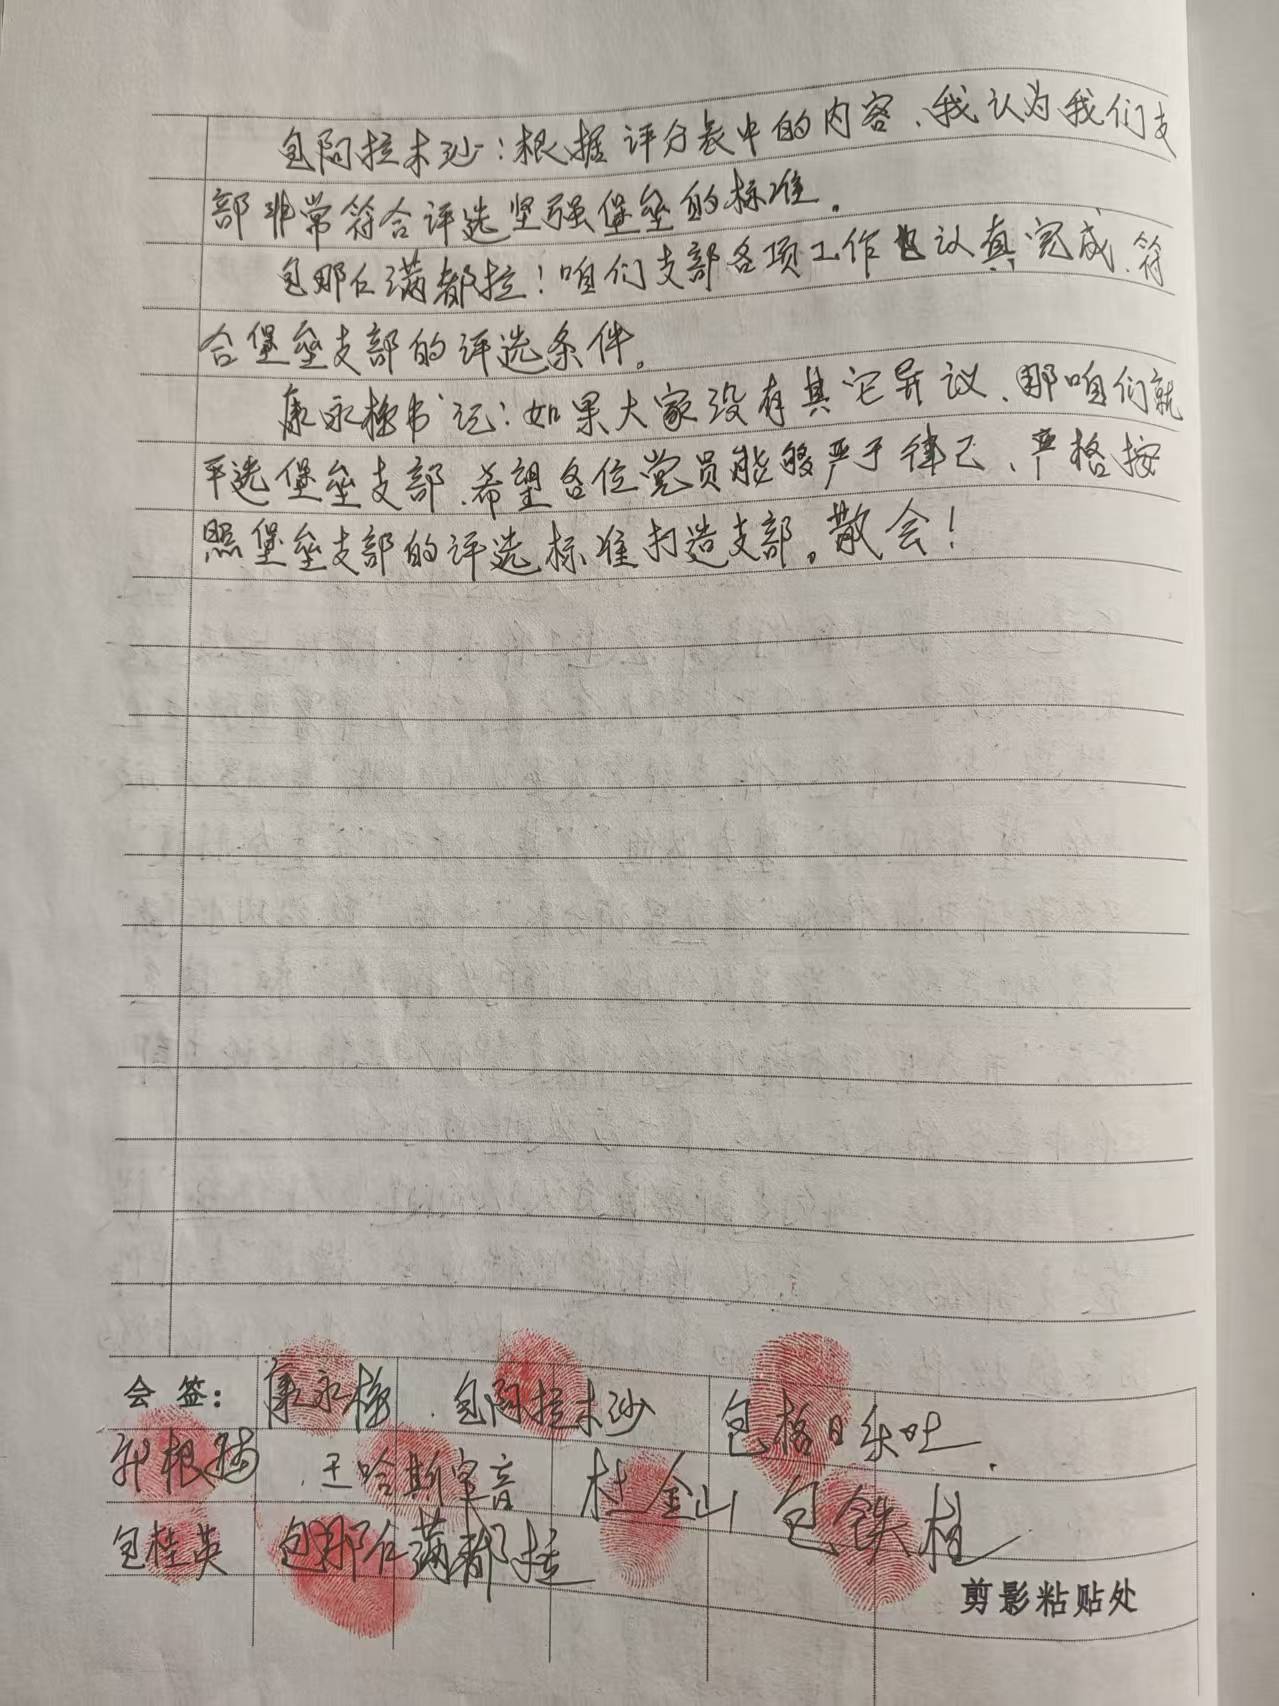 包阿拉木沙:根据评分表中的内容、我认为我们支
部非常符合评选坚强堡垒的标准.
包那仁满都拉:咱们支部各项工作也认真完成、符
合堡垒支部的评选条件。
康永梅书记:如果大家没有其它异议、那咱们就
平选堡垒支部、希望各位党员能够严于律己、严格按
照堡垒支部的评选标准打造支部。散会!
会 签: 康永梅 包阿拉木沙 包格日乐吐
根 王哈斯宝音 杜金山 包铁柱
包桂英 包那仁满都拉
剪影粘贴处